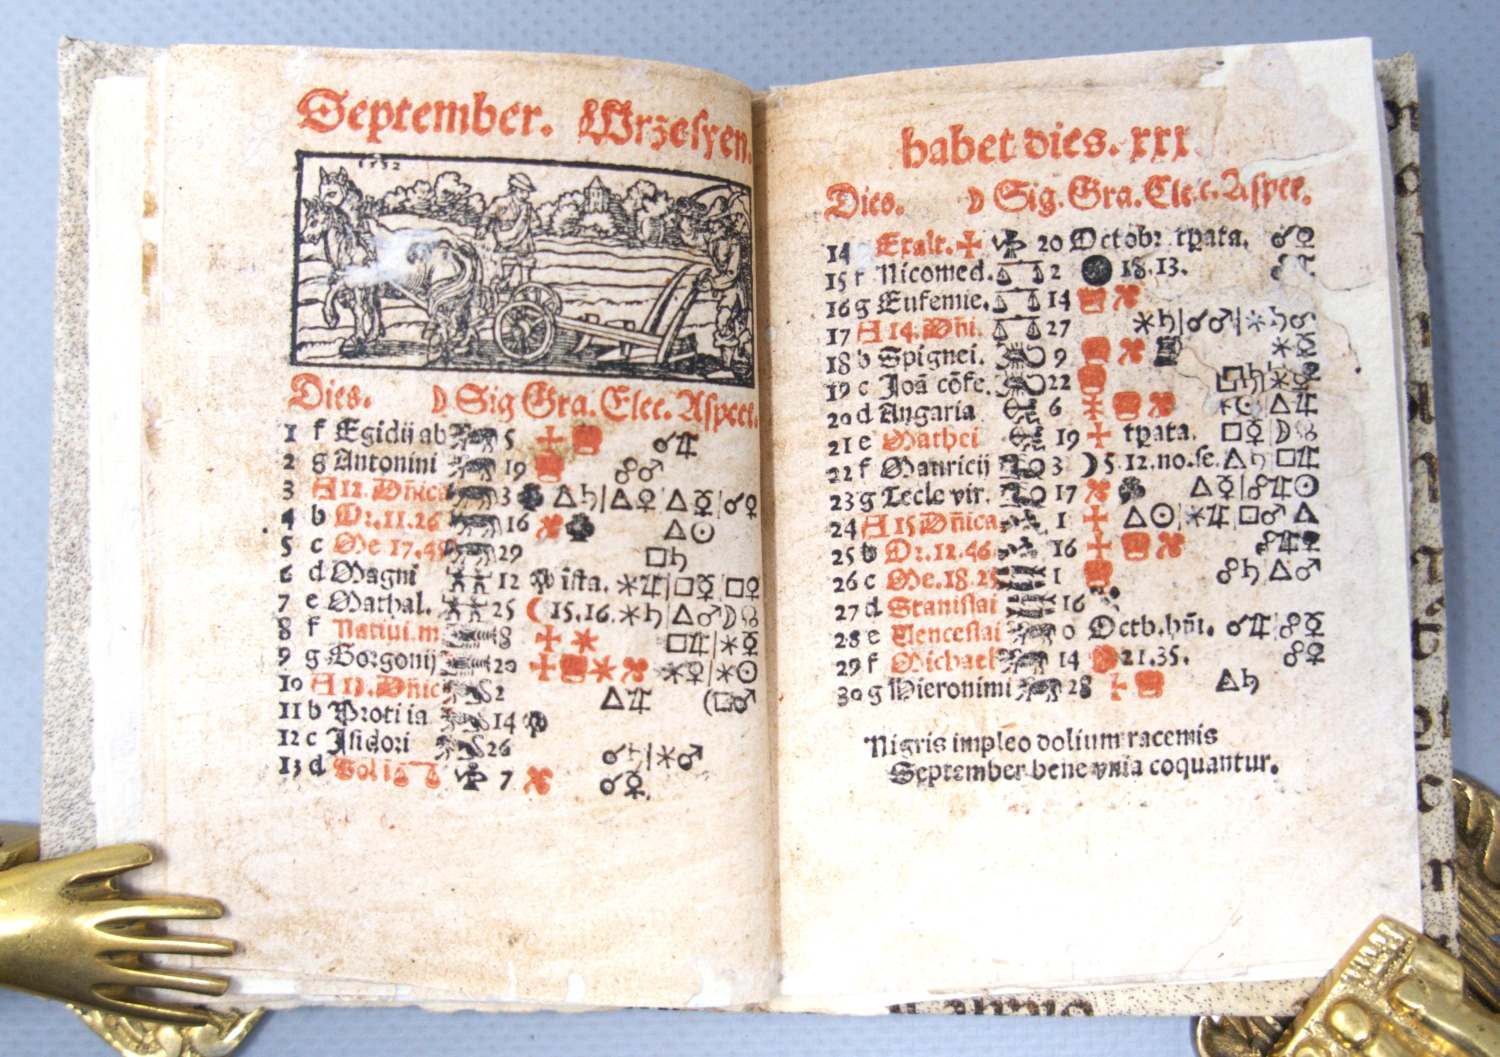 September. Wrzesyen.
1532
Dies. ☽ Sig Gra. Elec. Aspect.
1 f Egidij ab 5 ☌♃
2 g Antonini 19 ☍♂
3 A 12. Dñica 3 △♄|△♀ △☿|☌♀
4 b Or. 11. 26 16 △☉
5 c Oc 17. 29 □♄
6 d Magni 12 ista. ✶♃|□☿ □♀
7 e Mathal. 25 ☾ 15. 16. ✶♄|△♂☽☊
8 f Natiui. m 8 □♃|✶☿
9 g Gorgonij 20 ✶♀|✶☉
10 A 13. Dñic 2 △♃ (□♂
11 b Proti ia 14
12 c Isidori 26 ☌♄|✶♂
13 d Sol i ♎ 7 ☌☿.
habet dies. xxx
Dies. ☽ Sig. Gra. Elec. Aspec.
14 Exalt. ✝ 20 Octobr tpata. ☌♀
15 f Nicomed. 2 18. 13.
16 g Eufemie. 14
17 A 14. Dñi. 27 ✶♄|☌♂|✶
18 b Spignei. 9 ✶☿
19 c Joã cõfe. 22
20 d Angaria 6 △♃
21 e Mathei 19 tpata. □☿|☽☋
22 f Mauricij 3 ☽ 5. 12. no. se. △♄ □♃
23 g Tecle vir. 17 △☿|☍♃☉
24 A 15 Dñica 1 △☉|✶♃ □♂ △
25 b Or. 12. 46. 16
26 c Oc. 18. 25 1 ☍♄ △♂
27 d Stanislai 16
28 e Venceslai 0 Octb. hñi. ☌♃ ☍☿
29 f Michael 14 21. 35. ☍♀
30 g Hieronimi 28 △♄
Nigris impleo dolium racemis
September bene vnia coquantur.